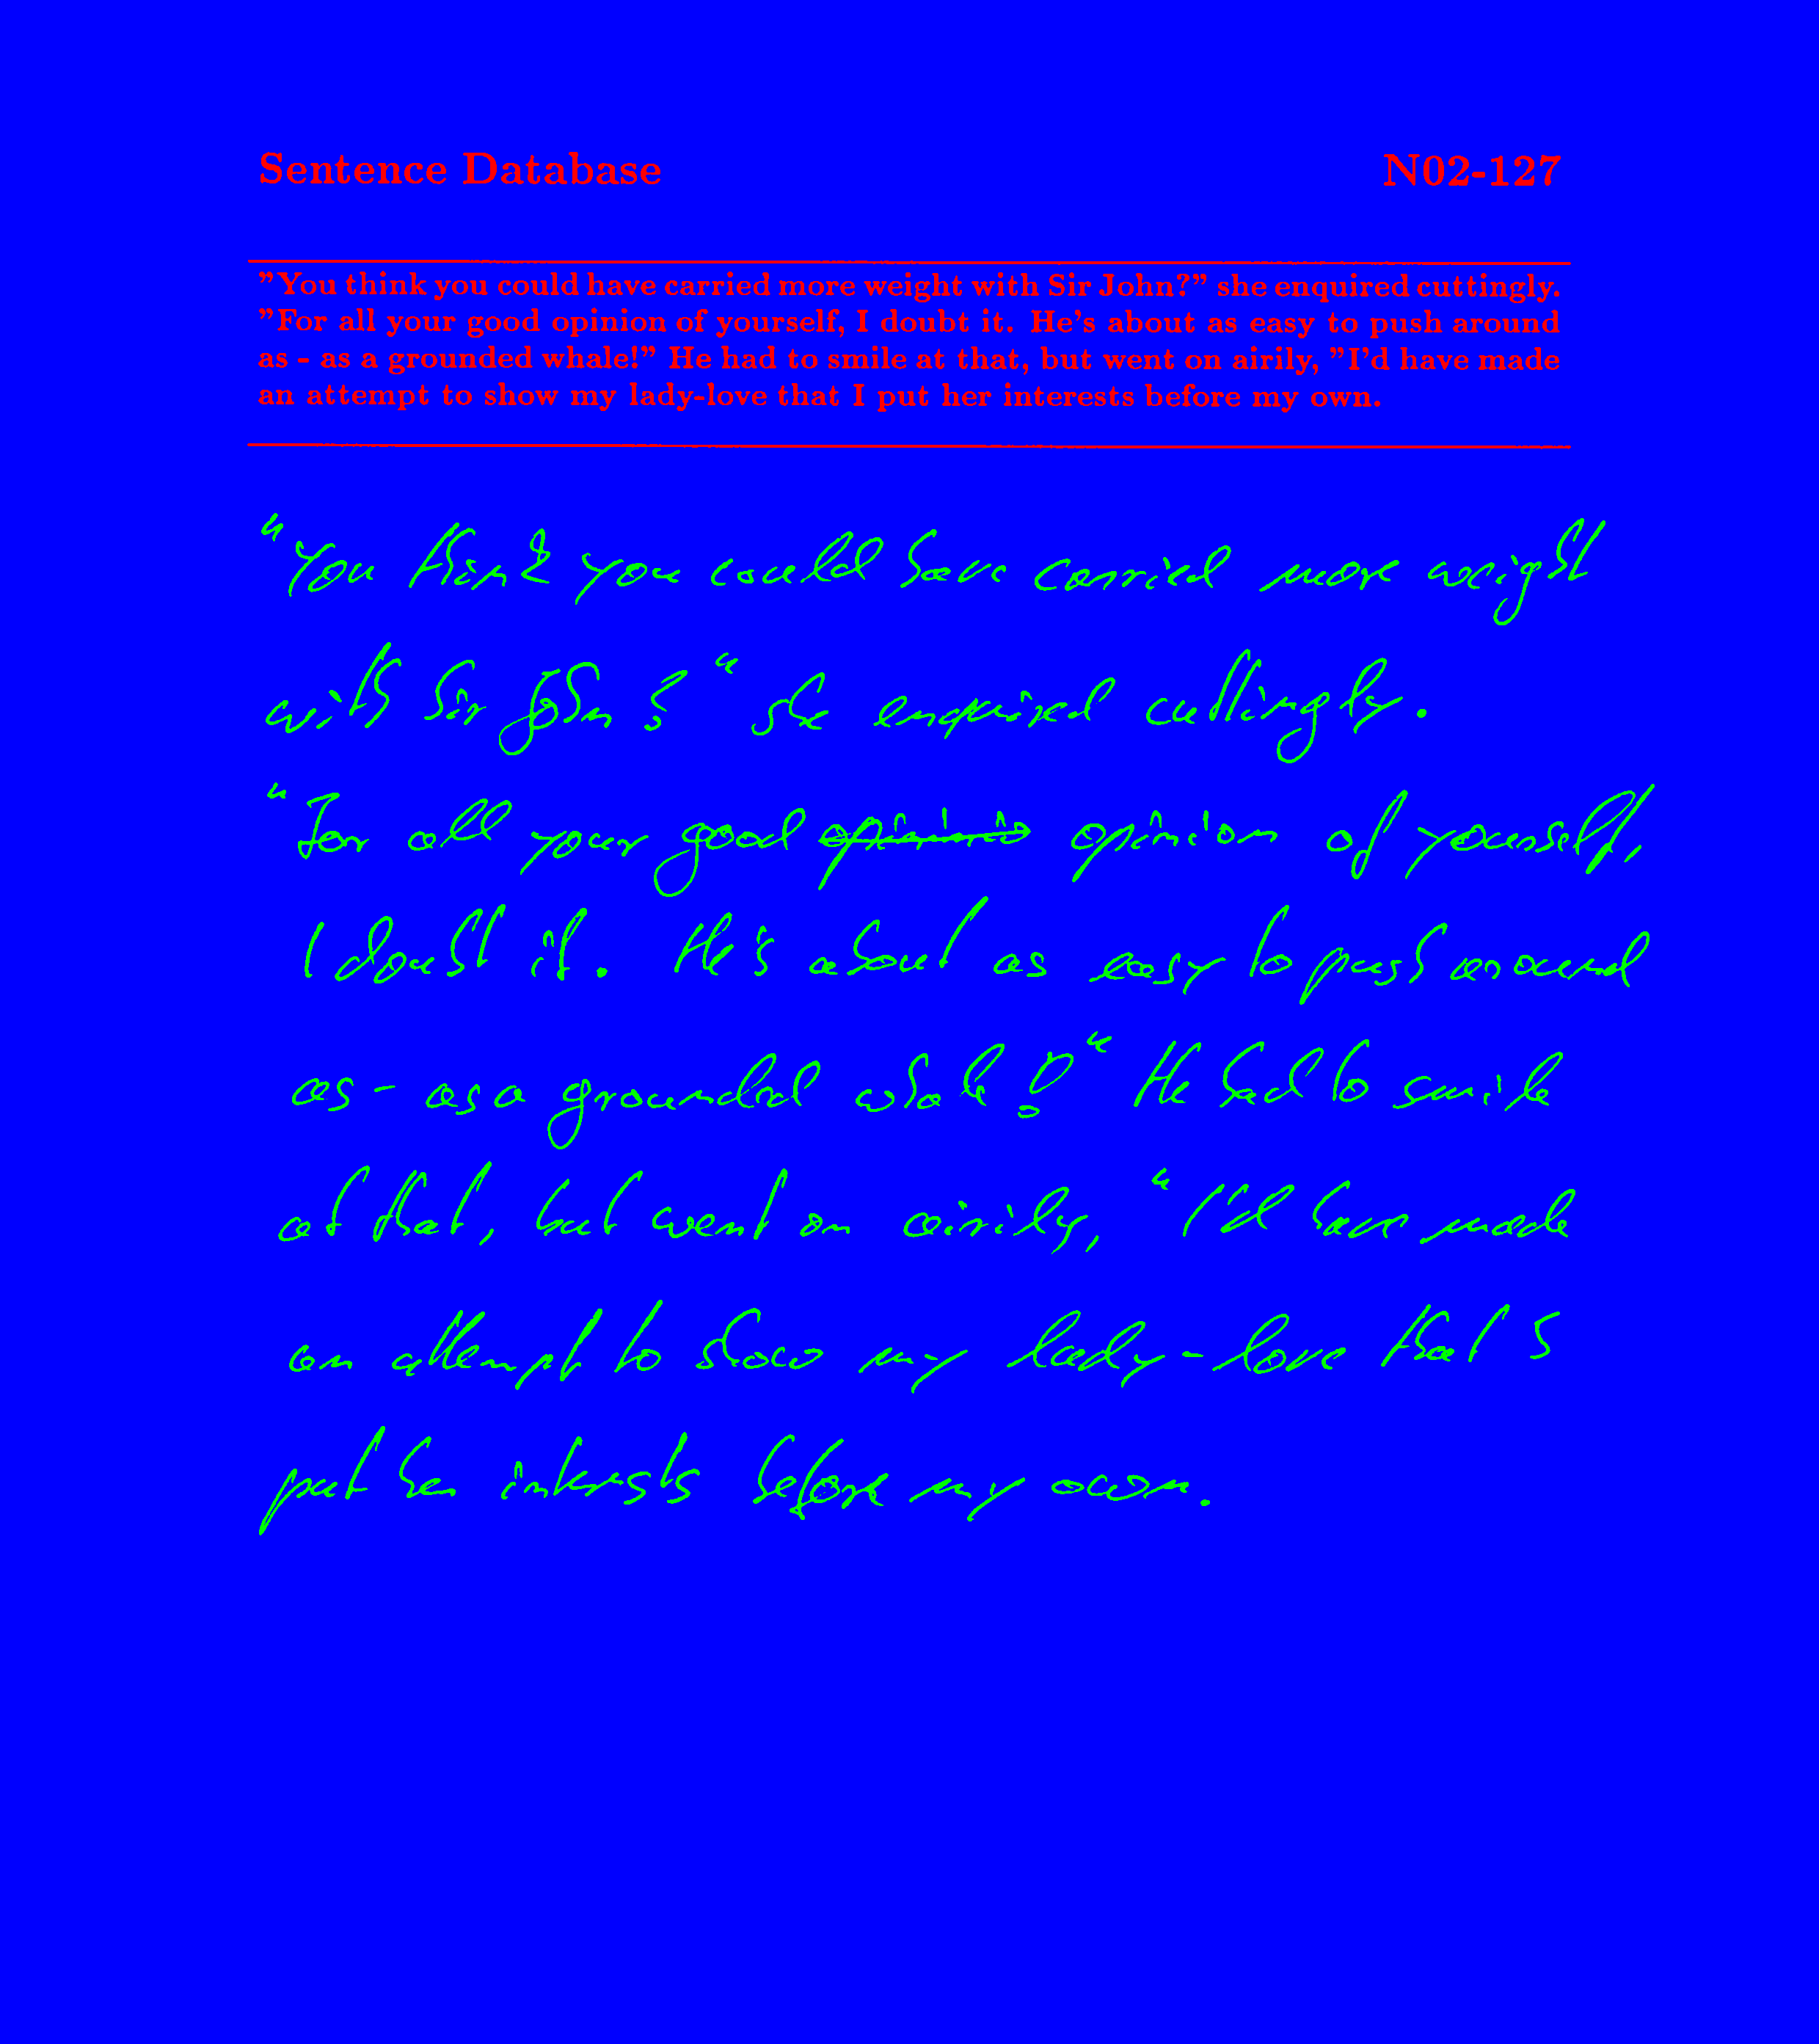 Sentence Database N02-127
"You think you could have carried more weight with Sir John?" she enquired cuttingly.
"For all your good opinion of yourself, I doubt it. He's about as easy to push around
as - as a grounded whale!" He had to smile at that, but went on airily, "I'd have made
an attempt to show my lady-love that I put her interests before my own.
"You think you could have carried more weight
with Sir John?" she enquired cuttingly.
"For all your good opinion of yourself,
I doubt it. He's about as easy to push around
as - as a grounded whale!" He had to smile
at that, but went on airily, "I'd have made
an attempt to show my lady-love that I
put her interests before my own.